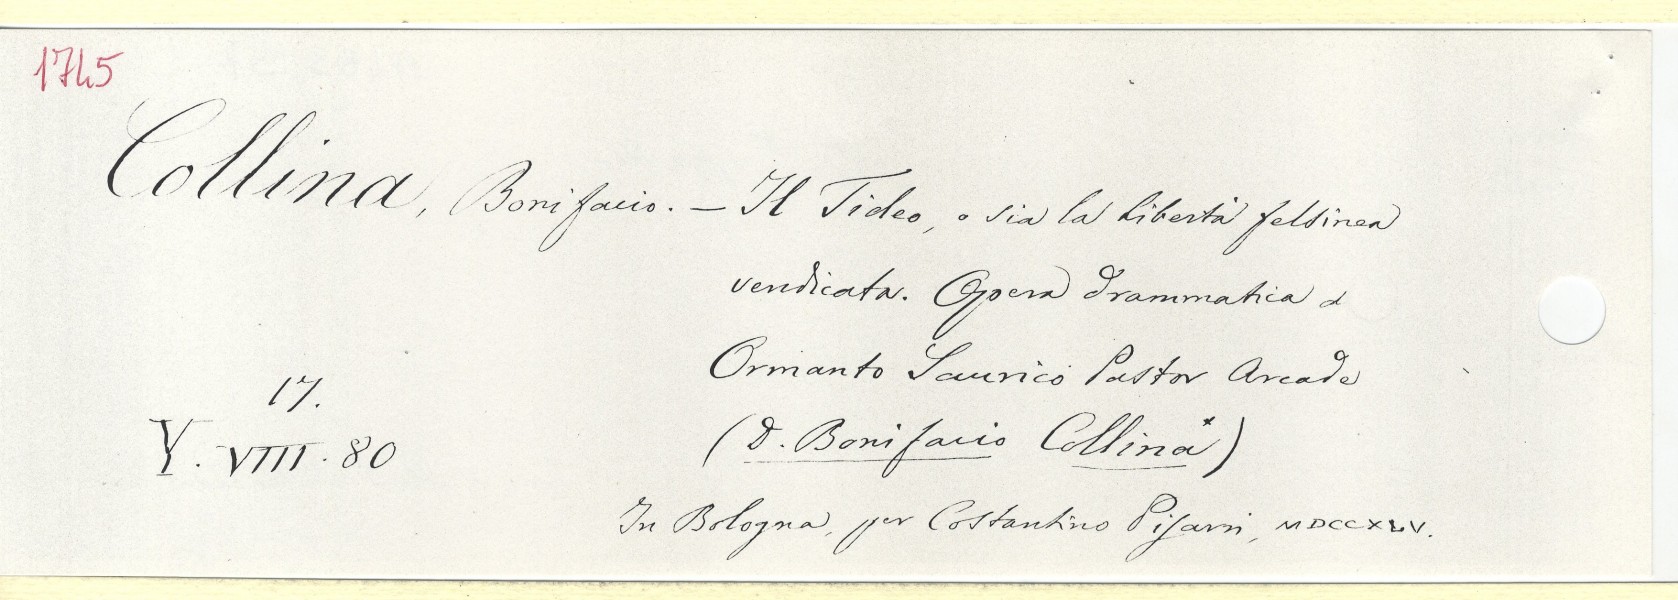 1745
Collina, Bonifacio. — Il Tideo, o sia la libertà felsinea
vendicata. Opera drammatica d
Ormanto Saurico Pastor Arcade
17.
(D. Bonifacio Collina*)
Y. VIII. 80
In Bologna, per Costantino Pisarri, MDCCXLV.